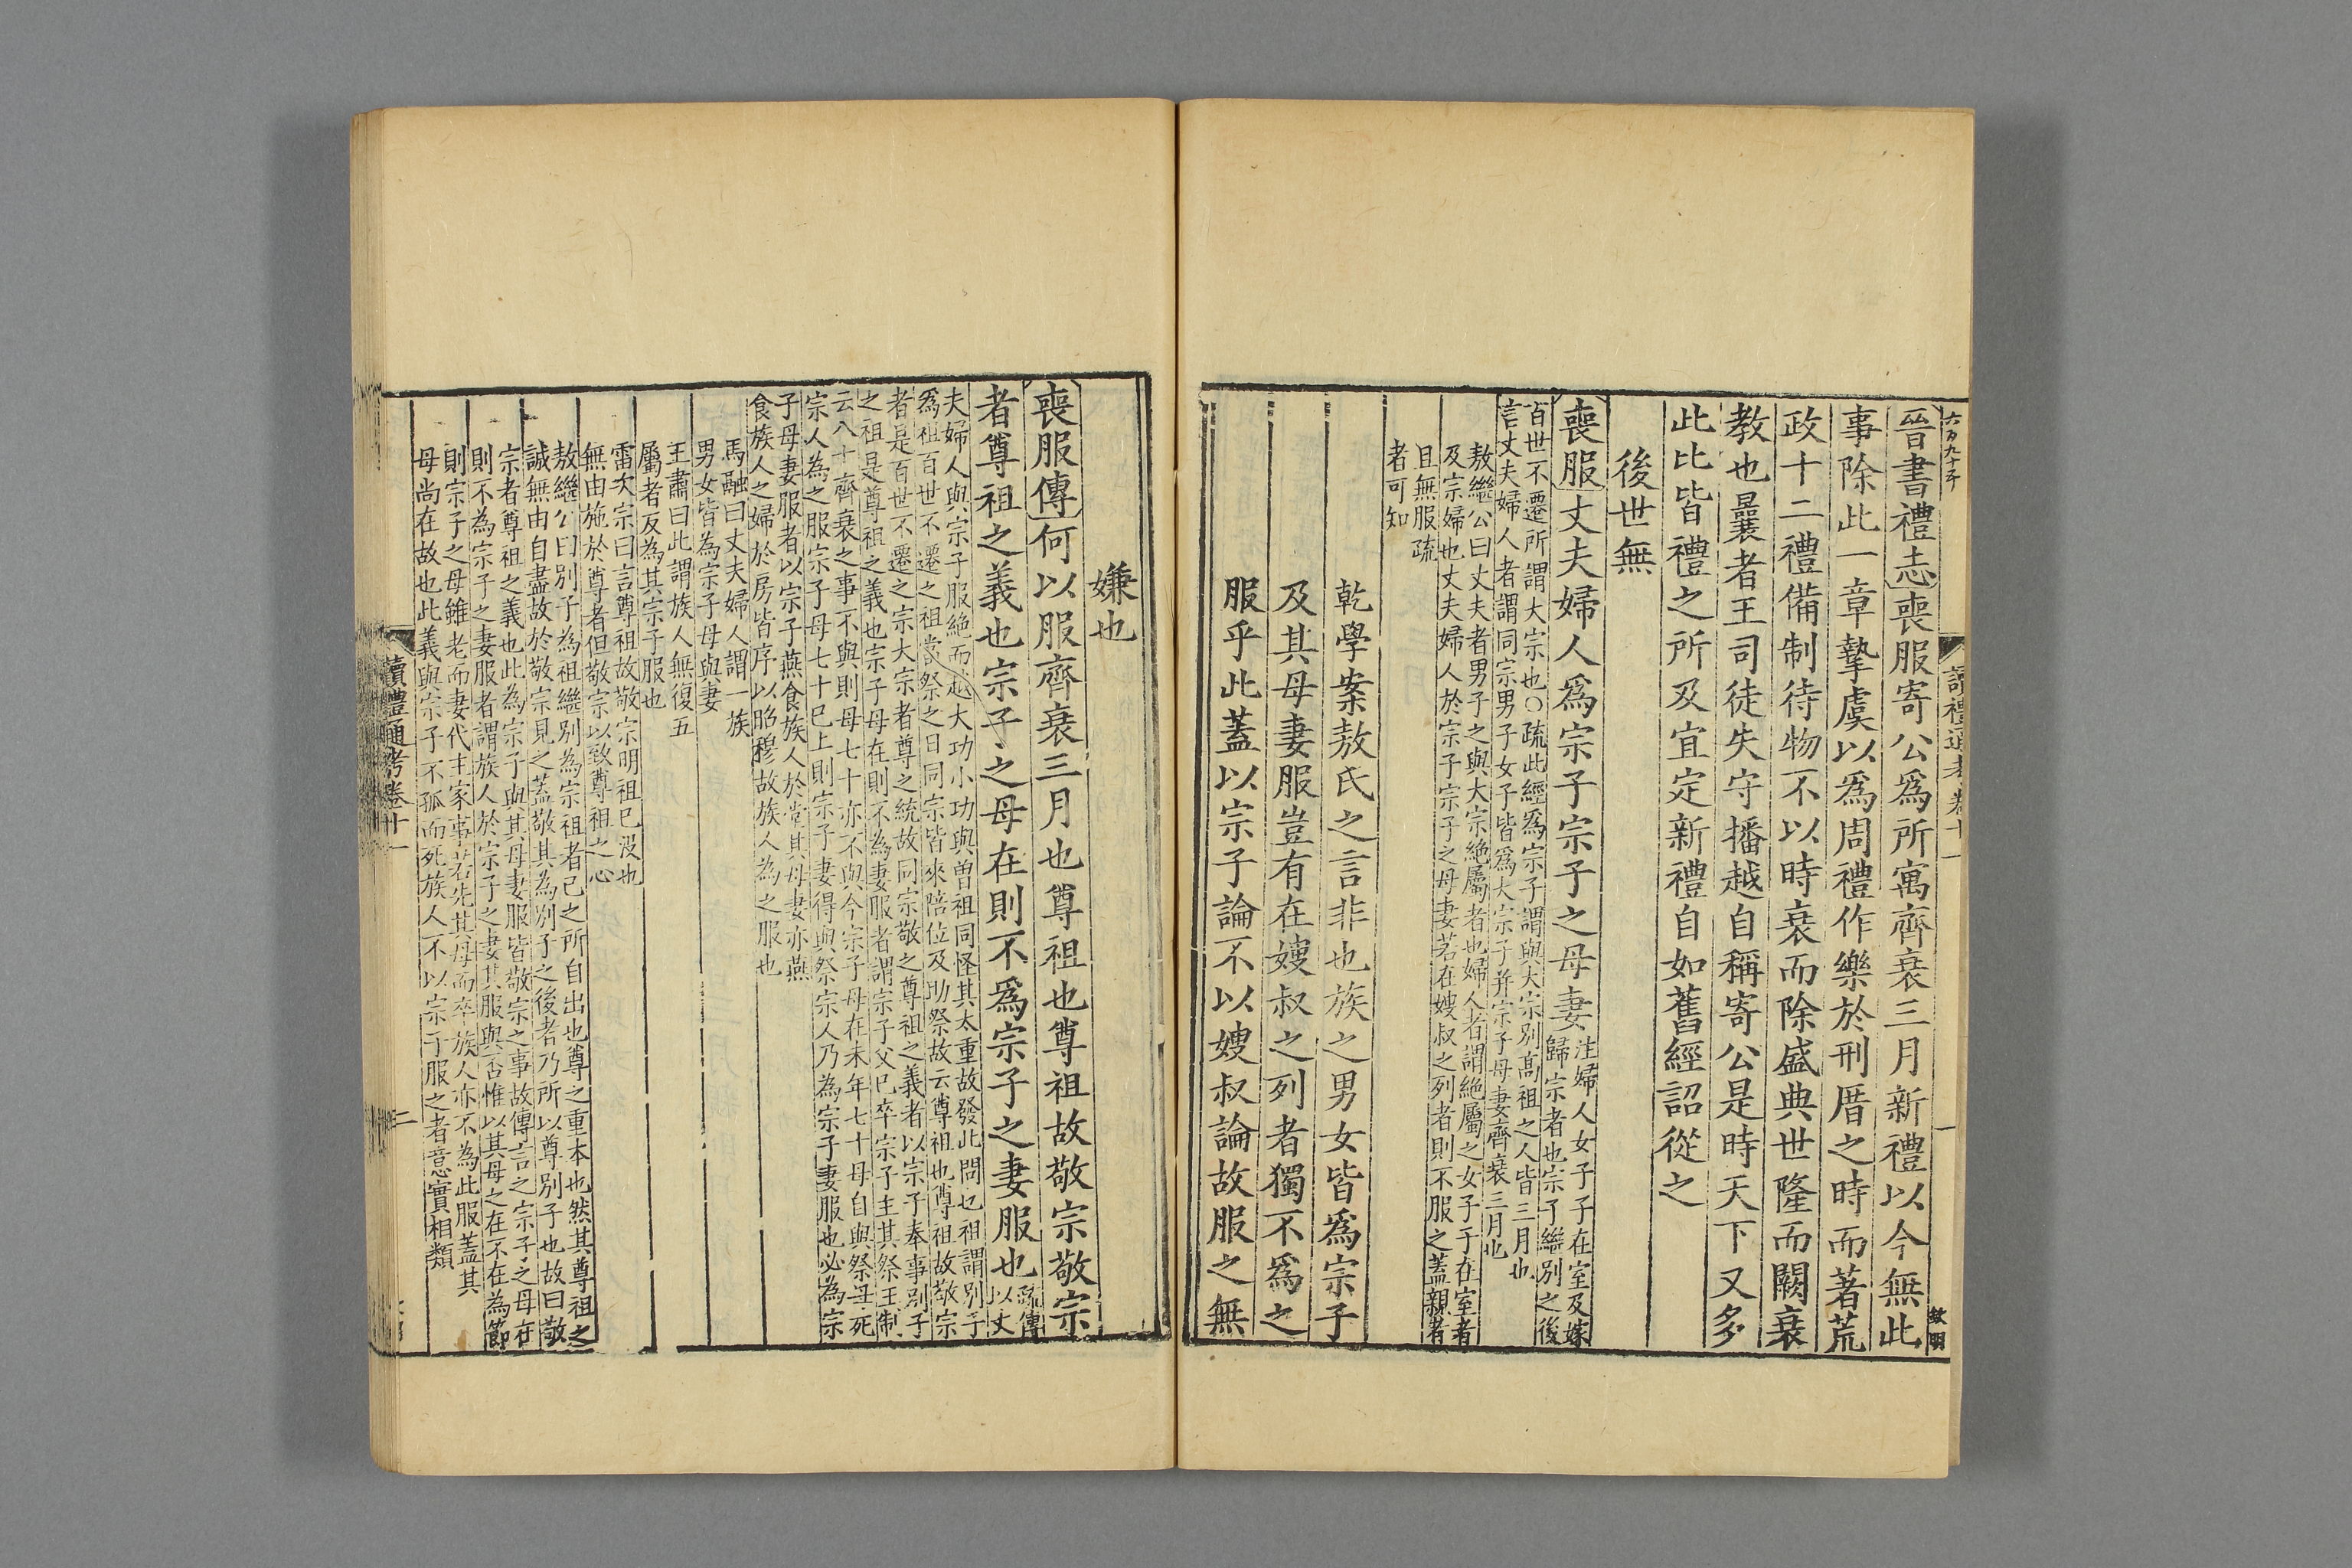 六百九十五
讀禮通考卷十一
一
敘明
晉書禮志喪服寄公爲所寓齊衰三月新禮以今無此
事除此一章摯虞以爲周禮作樂於刑厝之時而著荒
政十二禮備制待物不以時衰而除盛典世隆而闕衰
教也曩者王司徒失守播越自稱寄公是時天下又多
此比皆禮之所及宜定新禮自如舊經詔從之
後世無
喪服丈夫婦人爲宗子宗子之母妻
注婦人女子子在室及嫁
歸宗者也宗子繼別之後
百世不遷所謂大宗也○疏此經爲宗子謂與大宗別高祖之人皆三月也
言丈夫婦人者謂同宗男子女子皆爲大宗子并宗子母妻齊衰三月也
敖繼公曰丈夫者男子之與大宗絶屬者也婦人者謂絶屬之女子子在室者
及宗婦也丈夫婦人於宗子宗子之母妻若在嫂叔之列者則不服之蓋親者
且無服疏
者可知
乾學案敖氏之言非也族之男女皆爲宗子
及其母妻服豈有在嫂叔之列者獨不爲之
服乎此蓋以宗子論不以嫂叔論故服之無
嫌也
喪服傳何以服齊衰三月也尊祖也尊祖故敬宗敬宗
者尊祖之義也宗子之母在則不爲宗子之妻服也
疏傳
以丈
夫婦人與宗子服絶而越大功小功與曽祖同怪其太重故發此問也祖謂別子
爲祖百世不遷之祖當祭之日同宗皆來陪位及助祭故云尊祖也尊祖故敬宗
者是百世不遷之宗大宗者尊之統故同宗敬之尊祖之義者以宗子奉事別子
之祖是尊祖之義也宗子母在則不為妻服者謂宗子父已卒宗子主其祭王制
云八十齊衰之事不與則母七十亦不與今宗子母在未年七十母自與祭母死
宗人為之服宗子母七十巳上則宗子妻得與祭宗人乃為宗子妻服也必為宗
子母妻服者以宗子燕食族人於堂其母妻亦燕
食族人之婦於房皆序以昭穆故族人為之服也
馬融曰丈夫婦人謂一族
男女皆為宗子母與妻
王肅曰此謂族人無復五
屬者反為其宗子服也
雷次宗曰言尊祖故敬宗明祖已沒也
無由施於尊者但敬宗以致尊祖之心
敖繼公曰別子為祖繼別為宗祖者己之所自出也尊之重本也然其尊祖之
誠無由自盡故於敬宗見之蓋敬其為別子之後者乃所以尊別子也故曰敬
宗者尊祖之義也此為宗子與其母妻服皆敬宗之事故傳言之宗子之母在
則不為宗子之妻服者謂族人於宗子之妻其服與否惟以其母之在不在為節
則宗子之母雖老而妻代主家事若先其母而卒族人亦不為此服蓋其
母尚在故也此義與宗子不孤而死族人不以宗子服之者意實相類
讀禮通考卷十一
二